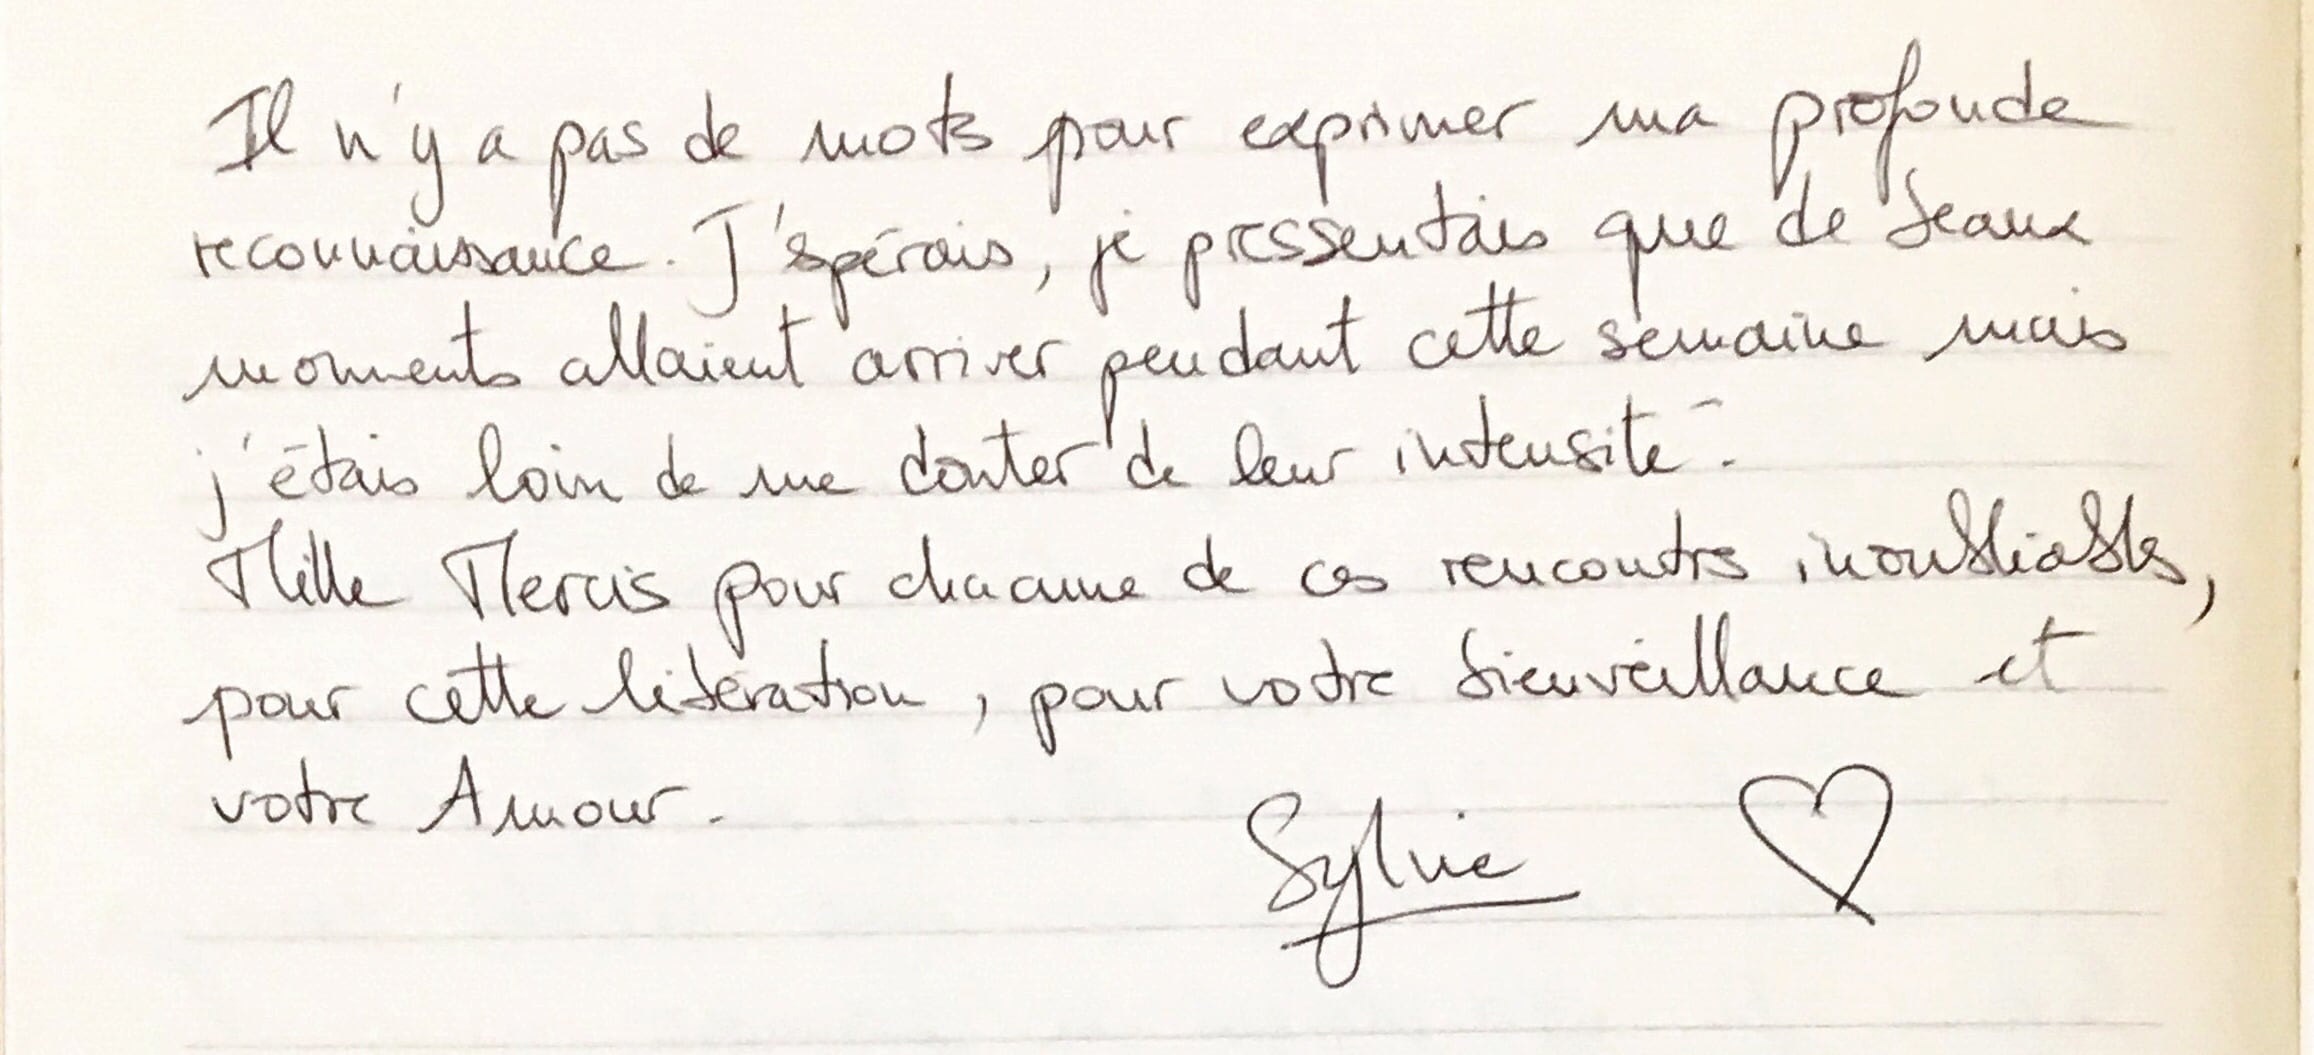 Il n'y a pas de mots pour exprimer ma profonde
reconnaissance. J'espérais, je pressentais que de beaux
moments allaient arriver pendant cette semaine mais
j'étais loin de me douter de leur intensité.
Mille Mercis pour chacune de ces rencontres inoubliables,
pour cette libération, pour votre bienveillance et
votre Amour.
Sylvie ♡